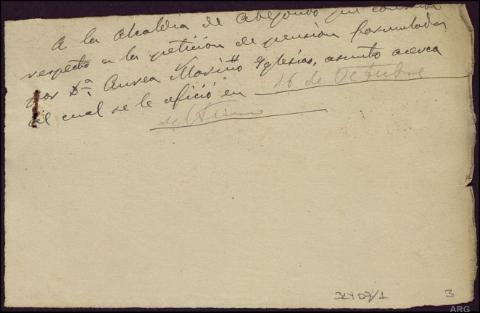 A la alcaldia de Abegondo que
respecto a la petición de pensión formulada
por Dª Aurea Mariño Iglesias, asunto acerca
del cual se le ofició en 16 de Octubre
3
ARG